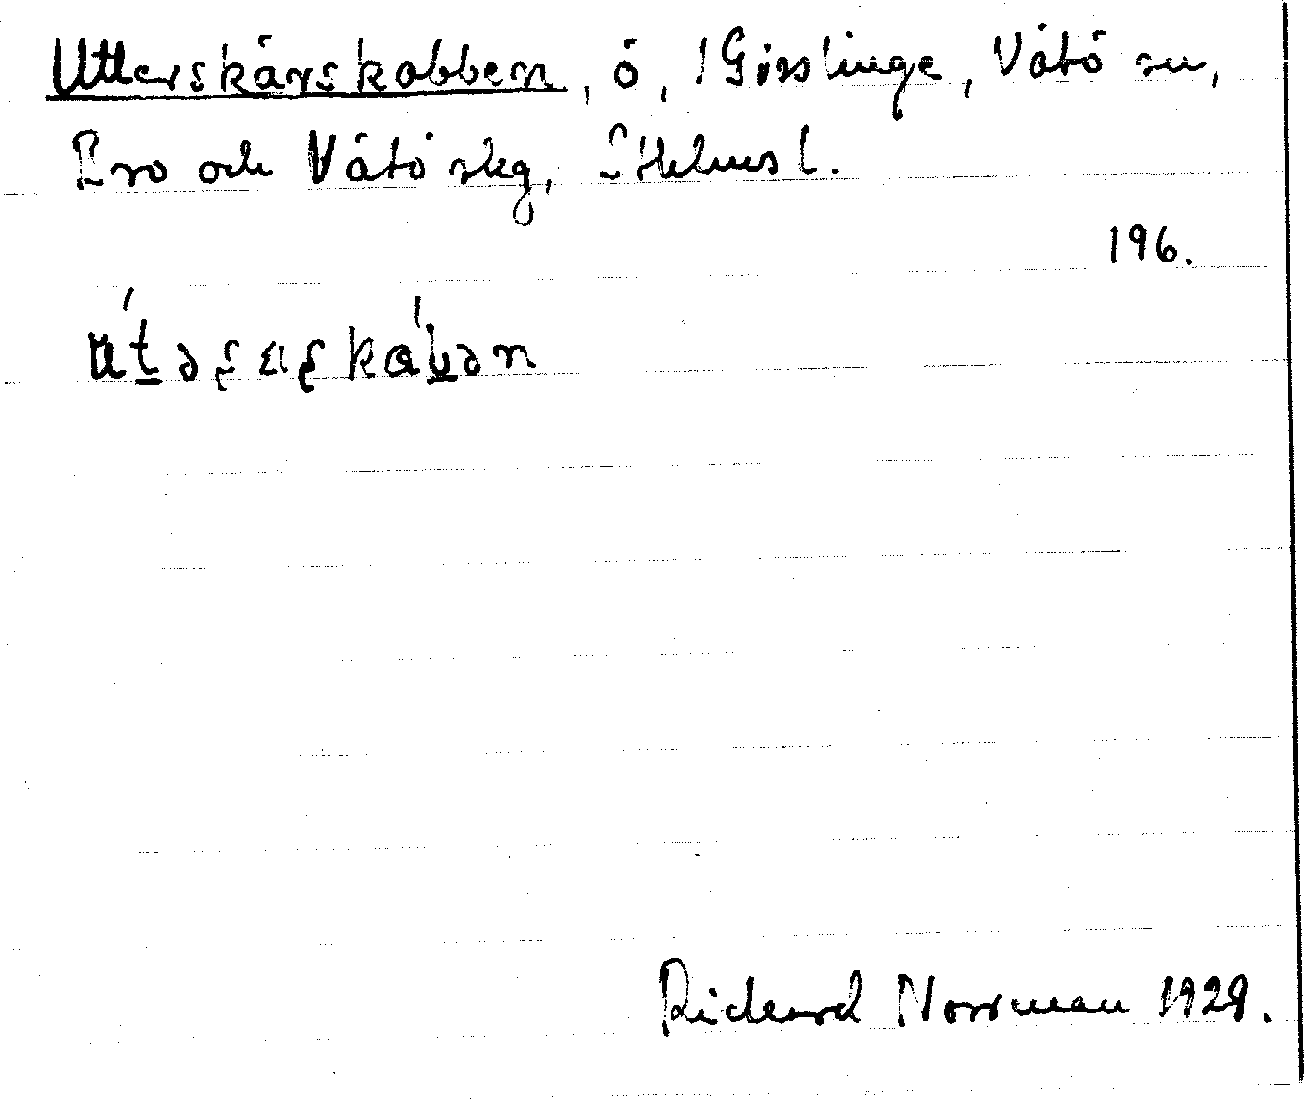 Utterskärskobben, ö, Gisslinge, Vätö sn,
Bro och Vätö skg, Sthlms l.
196.
Rickard Norrman 1928.